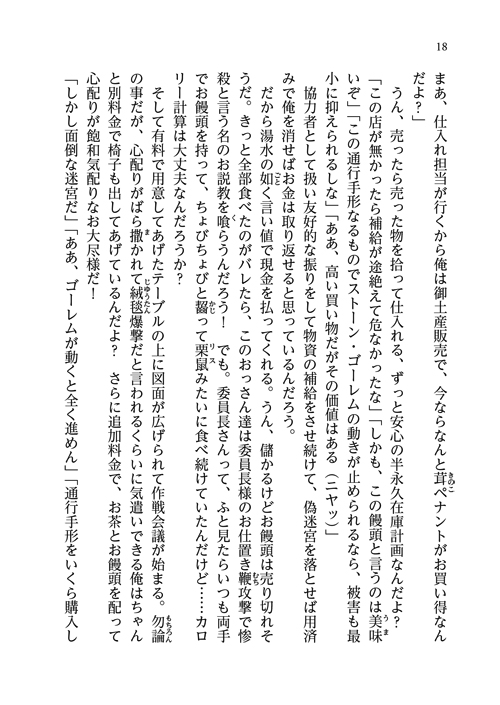 18
まあ、仕入れ担当が行くから俺は御土産販売で、今ならなんと茸ペナントがお買い得なん
だよ？」
うん、売ったら売った物を拾って仕入れる、ずっと安心の半永久在庫計画なんだよ？
「この店が無かったら補給が途絶えて危なかったな」「しかも、この饅頭と言うのは美味
いぞ」「この通行手形なるものでストーン・ゴーレムの動きが止められるなら、被害も最
小に抑えられるしな」「ああ、高い買い物だがその価値はある（ニヤッ）」
協力者として扱い友好的な振りをして物資の補給をさせ続けて、偽迷宮を落とせば用済
みで俺を消せばお金は取り返せると思っているんだろう。
だから湯水の如く言い値で現金を払ってくれる。うん、儲かるけどお饅頭は売り切れそ
うだ。きっと全部食べたのがバレたら、このおっさん達は委員長様のお仕置き鞭攻撃で惨
殺と言う名のお説教を喰らうんだろう！　でも。委員長さんって、ふと見たらいつも両手
でお饅頭を持って、ちょびちょびと齧って栗鼠みたいに食べ続けていたんだけど……カロ
リー計算は大丈夫なんだろうか？
そして有料で用意してあげたテーブルの上に図面が広げられて作戦会議が始まる。勿論
の事だが、心配りがばら撒かれて絨毯爆撃だと言われるくらいに気遣いできる俺はちゃん
と別料金で椅子も出してあげているんだよ？　さらに追加料金で、お茶とお饅頭を配って
心配りが飽和気配りなお大尽様だ！
「しかし面倒な迷宮だ」「ああ、ゴーレムが動くと全く進めん」「通行手形をいくら購入し